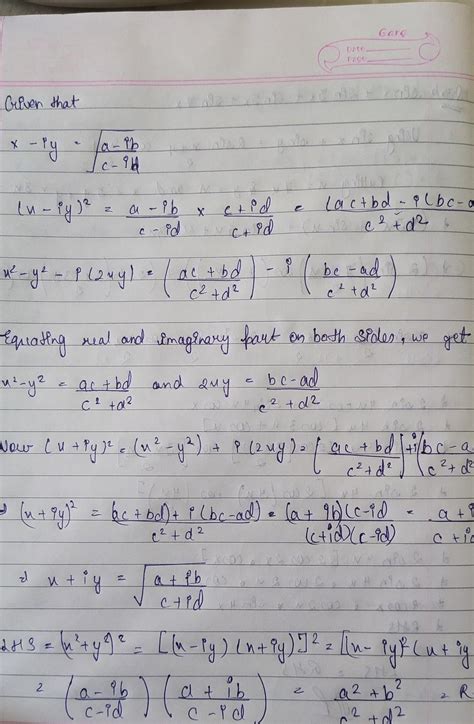 DATE
PAGE
Given that
x - iy = √(a-ib / c-ib)
(x - iy)² = a-ib / c-id × c+id / c+id = (ac+bd - i(bc-a / c²+d²
x² - y² - i(2xy) = (ac+bd / c²+d²) - i (bc-ad / c²+d²)
Equating real and imaginary part on both sides, we get
x²-y² = ac+bd / c²+d² and 2xy = bc-ad / c²+d²
Now (x+iy)² = (x²-y²) + i(2xy) = [ac+bd / c²+d²] + i (bc-a / c²+d²
(x+iy)² = (ac+bd)+i(bc-ad) / c²+d² = (a+ib)(c-id / (c+id)(c-id) = a+i / c+i
⇒ x+iy = √(a+ib / c+id)
LHS = (x²+y²)² = [(x-iy)(x+iy)]² = [(x-iy)² (x+iy
= (a-ib / c-id) (a+ib / c+id) = a²+b² / c²+d² = R